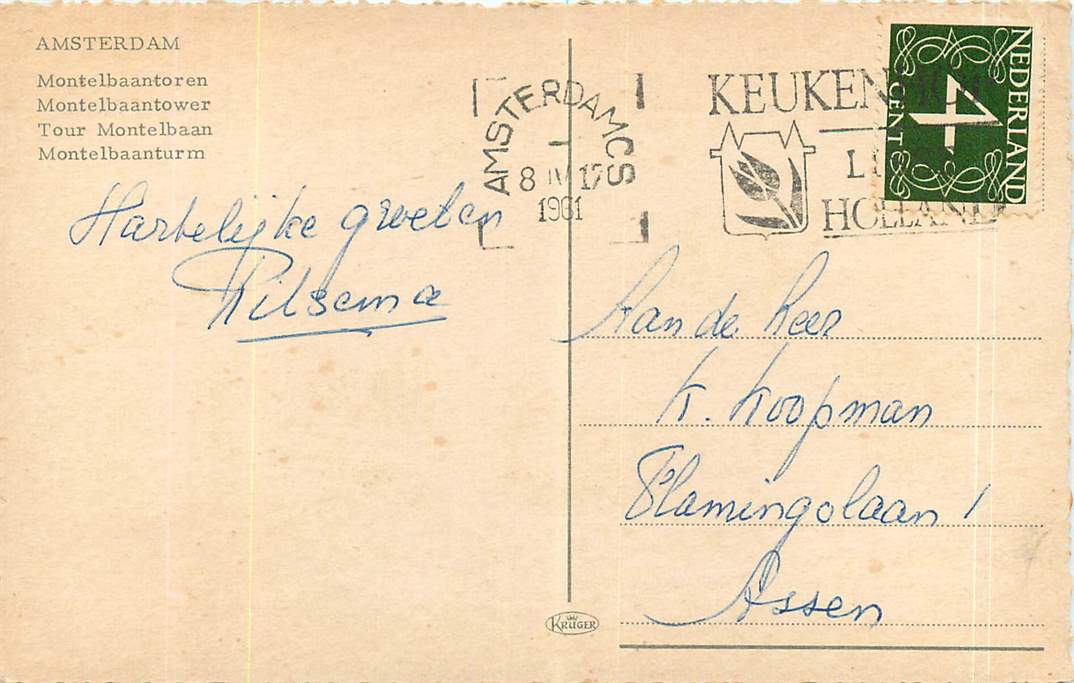 AMSTERDAM
Montelbaantoren
Montelbaantower
Tour Montelbaan
Montelbaanturm
Hartelijke groeten
AMSTERDAM CS
8 IV 17
1961
KEUKENHOF
HOLLAND
NEDERLAND
4
CENT
Aan de Heer
K. Koopman
Flamingolaan 1
Assen
KRÜGER